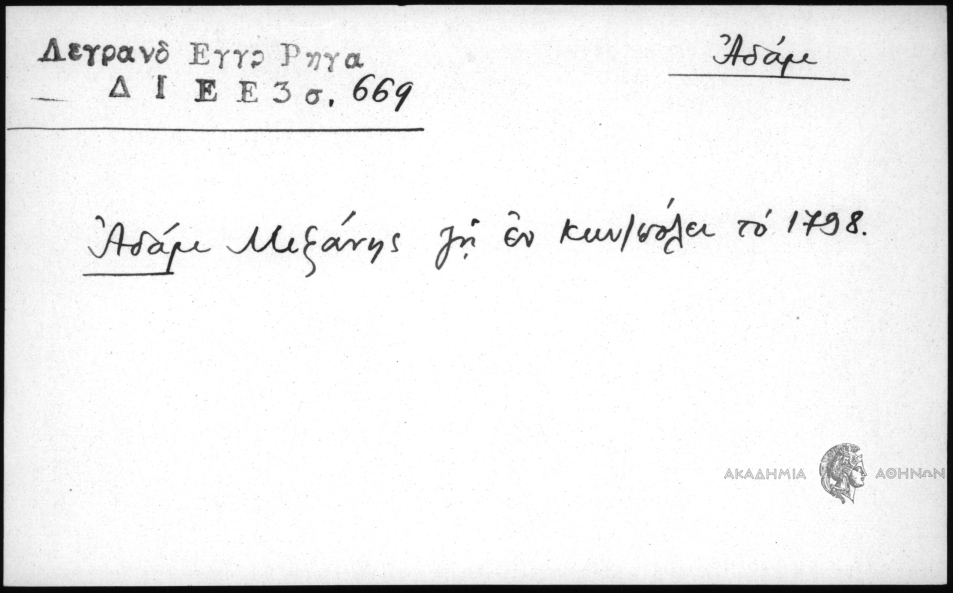 Δεγρανδ Εγγρ Ρηγα
Ἀδάμε
Δ Ι Ε Ε 3 σ. 669
Ἀδάμε Μεξάνης ζῇ ἐν Κων/πόλει τό 1798.
ΑΚΑΔΗΜΙΑ ΑΘΗΝΩΝ